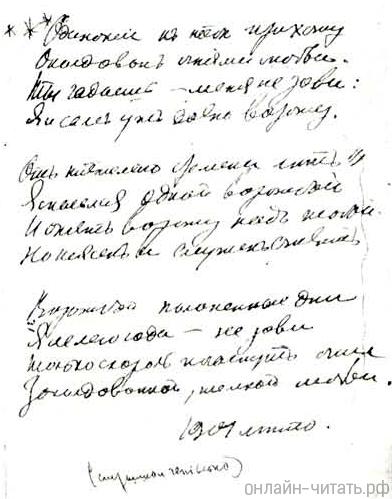 * * * Одинокій къ тебѣ прихожу
Околдованъ огнями любви.
Ты гадаешь – меня не зови:
Я и самъ ужъ давно ворожу.
Отъ тяжелаго бремени лѣтъ
Я спасался одной ворожбой
И опять ворожу надъ тобой
Но неясенъ и смутенъ отвѣтъ
Ворожбой полоненные дни
Я лелею года – не зови
Только скоро ль погаснутъ огни
Заколдованной, темной любви.
1901 лѣто.
онлайн-читать.рф